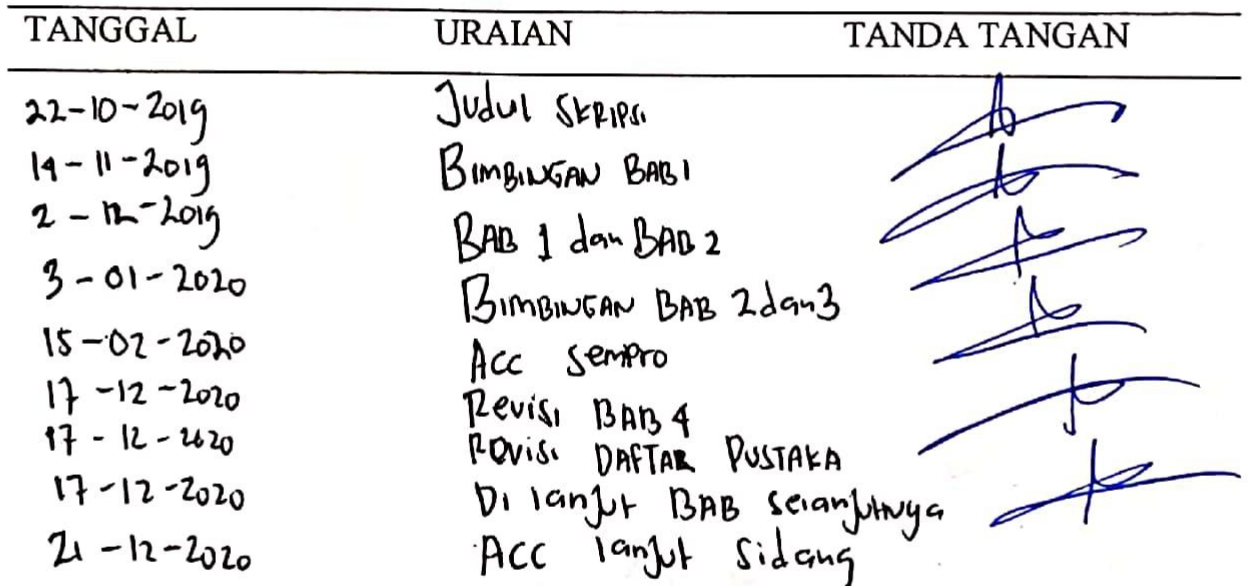 TANGGAL URAIAN TANDA TANGAN
22-10-2019 Judul SKRIPSI
14-11-2019 BIMBINGAN BAB 1
2-12-2019 BAB 1 dan BAB 2
3-01-2020 BIMBINGAN BAB 2 dan 3
15-02-2020 Acc Sempro
17-12-2020 Revisi BAB 4
17-12-2020 Revisi DAFTAR PUSTAKA
17-12-2020 Di lanjut BAB selanjutnya
21-12-2020 ACC lanjut Sidang